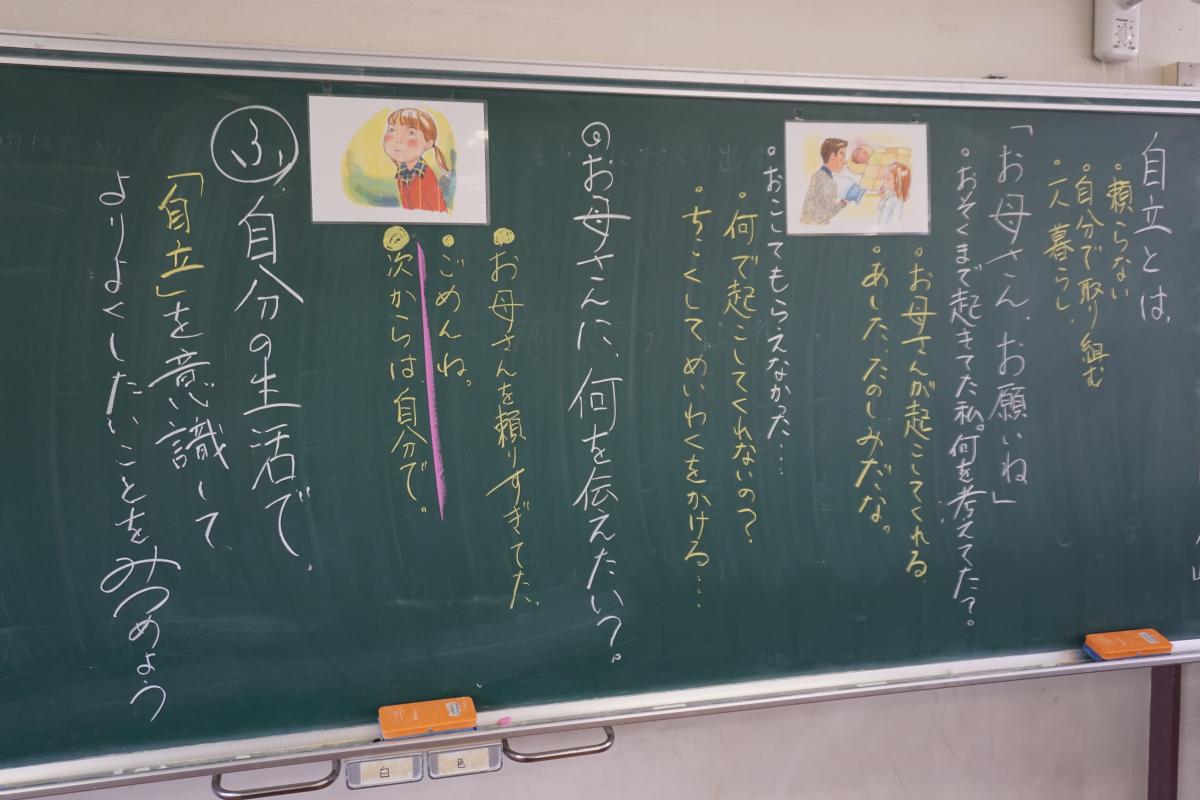 自立とは、
・頼らない
・自分で取り組む
・一人暮らし、
「お母さん、お願いね」
・おそくまで起きてた私。何を考えてた？。
・お母さんが起こしてくれる
・あした、たのしみだな。
・おこてもらえなかった…
・何で起こしてくれないの？
・ちこくしてめいわくをかける…
◎お母さんに、何を伝えたい？。
お母さんを頼りすぎてた、
ごめんね。
次からは、自分で。
ふ、自分の生活で、
「自立」を意識して、
よりよくしたいことをみつめよう
白
色